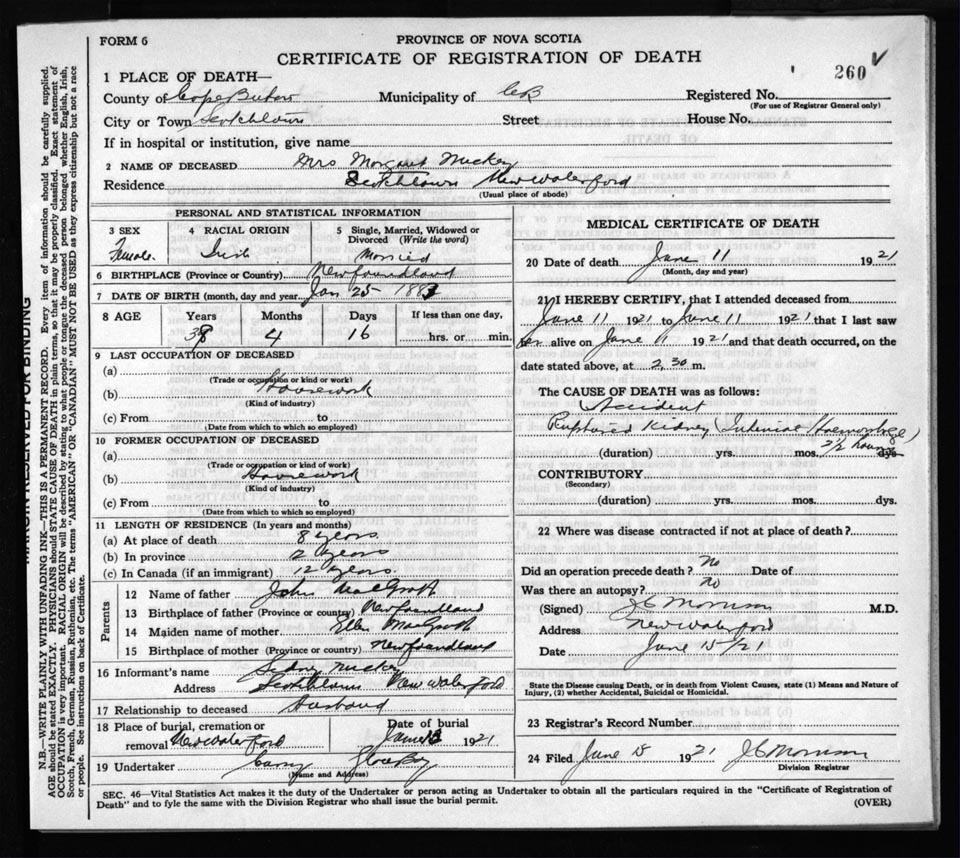 FORM 6
PROVINCE OF NOVA SCOTIA
CERTIFICATE OF REGISTRATION OF DEATH
260
1 PLACE OF DEATH—
County of Cape Breton Municipality of CB Registered No.
(For use of Registrar General only)
City or Town Scotchtown Street House No.
If in hospital or institution, give name
2 NAME OF DECEASED Mrs Margaret Nuckey
Residence Scotchtown New Waterford
(Usual place of abode)
PERSONAL AND STATISTICAL INFORMATION
3 SEX
4 RACIAL ORIGIN
5 Single, Married, Widowed or Divorced (Write the word)
Female.
Irish
Married
6 BIRTHPLACE (Province or Country) Newfoundland
7 DATE OF BIRTH (month, day and year) Jan 25 1883
8 AGE Years Months Days If less than one day,
38 4 16 hrs. or min.
9 LAST OCCUPATION OF DECEASED
(a)
(Trade or occupation or kind or work)
(b) Housework
(Kind of industry)
(c) From to
(Date from which to which so employed)
10 FORMER OCCUPATION OF DECEASED
(a)
(Trade or occupation or kind or work)
(b) Housework
(Kind of industry)
(c) From to
(Date from which to which so employed)
11 LENGTH OF RESIDENCE (In years and months)
(a) At place of death 8 years
(b) In province 2 years
(c) In Canada (if an immigrant) 12 years.
Parents
12 Name of father John
13 Birthplace of father (Province or country) Newfoundland
14 Maiden name of mother Ellen
15 Birthplace of mother (Province or country) Newfoundland
16 Informant's name Sidney Nuckey
Address Scotchtown New Waterford
17 Relationship to deceased Husband
18 Place of burial, cremation or removal New Waterford
Date of burial June 13 1921
19 Undertaker Curry Glace Bay
(Name and Address)
MEDICAL CERTIFICATE OF DEATH
20 Date of death June 11 1921
(Month, day and year)
21 I HEREBY CERTIFY, that I attended deceased from
June 11 1921 to June 11 1921 that I last saw
her alive on June 11 1921 and that death occurred, on the
date stated above, at 2.30 m.
The CAUSE OF DEATH was as follows:
Accident
Ruptured Kidney (Internal Haemorrhage)
(duration) yrs. mos. 2½ hours dys.
CONTRIBUTORY
(Secondary)
(duration) yrs. mos. dys.
22 Where was disease contracted if not at place of death?
Did an operation precede death? No Date of
Was there an autopsy? No
(Signed) J C Morrison M.D.
Address New Waterford
Date June 15/21
State the Disease causing Death, or in death from Violent Causes, state (1) Means and Nature of
Injury, (2) whether Accidental, Suicidal or Homicidal.
23 Registrar's Record Number
24 Filed June 15 1921 J C Morrison
Division Registrar
SEC. 46—Vital Statistics Act makes it the duty of the Undertaker or person acting as Undertaker to obtain all the particulars required in the "Certificate of Registration of
Death" and to fyle the same with the Division Registrar who shall issue the burial permit.
(OVER)
MARGIN RESERVED FOR BINDING
N.B.—WRITE PLAINLY WITH UNFADING INK—THIS IS A PERMANENT RECORD. Every item of information should be carefully supplied.
AGE should be stated EXACTLY. PHYSICIANS should STATE CAUSE OF DEATH in plain terms, so that it may be properly classified. Exact statement of
OCCUPATION is very important. RACIAL ORIGIN will be described by stating to what people or tongue the deceased person belonged whether English, Irish,
Scotch, French, German, Russian, Ruthenian, etc. The terms "AMERICAN" or "CANADIAN" MUST NOT BE USED as they express citizenship but not a race
or people. See instructions on back of Certificate.